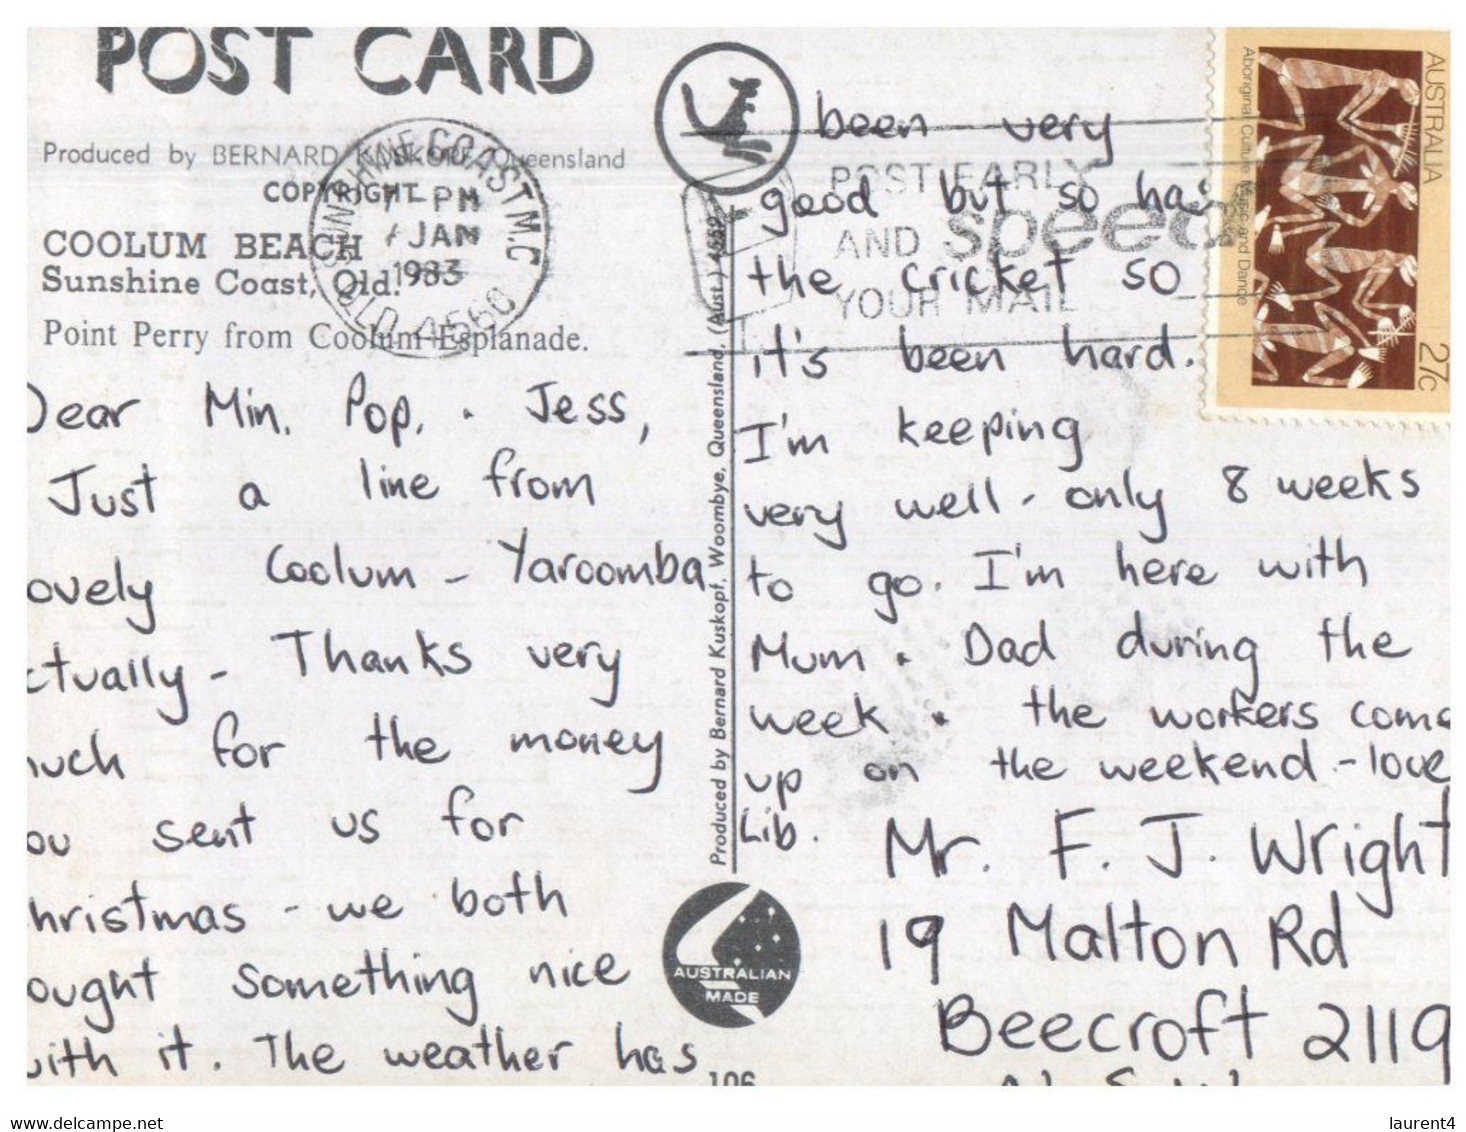 POST CARD
Produced by BERNARD KUSKOPF, Queensland
COPYRIGHT
COOLUM BEACH
Sunshine Coast, Qld.
Point Perry from Coolum Esplanade.
SUNSHINE COAST M.C
7 PM
7 JAN
1983
QLD. 4560
Dear Min, Pop, & Jess,
Just a line from
ovely Coolum - Yaroomba
ctually - Thanks very
uch for the money
ou sent us for
hristmas - we both
ought something nice
with it. The weather has
Produced by Bernard Kuskopf, Woombye, Queensland, (Aust.) 4559
AUSTRALIAN
MADE
106
POST EARLY
AND speed
YOUR MAIL
AUSTRALIA
Aboriginal Culture Music and Dance
27c
been very
good but so has
the cricket so
it's been hard.
I'm keeping
very well - only 8 weeks
to go. I'm here with
Mum & Dad during the
week & the workers come
up on the weekend - love
Lib.
Mr. F. J. Wright
19 Malton Rd
Beecroft 2119
N.S.W.
laurent4